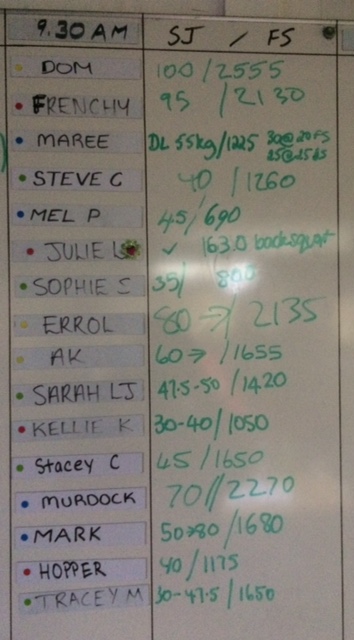 9.30 AM SJ / FS
DOM 100/2555
FRENCHY 95 /2130
MAREE DL 55kg/1225 30@20FS
25@25BS
STEVE C 40 /1260
MEL P 45/690
JULIE L ✓ 1630 backsquat
SOPHIE S 35/ 800
ERROL 80→/2135
AK 60→/1655
SARAH LJ 47.5-50/1420
KELLIE K 30-40/1050
Stacey C 45/1650
MURDOCK 70//2270
MARK 50→80/1680
HOPPER 40/1175
TRACEY M 30-47.5/1650